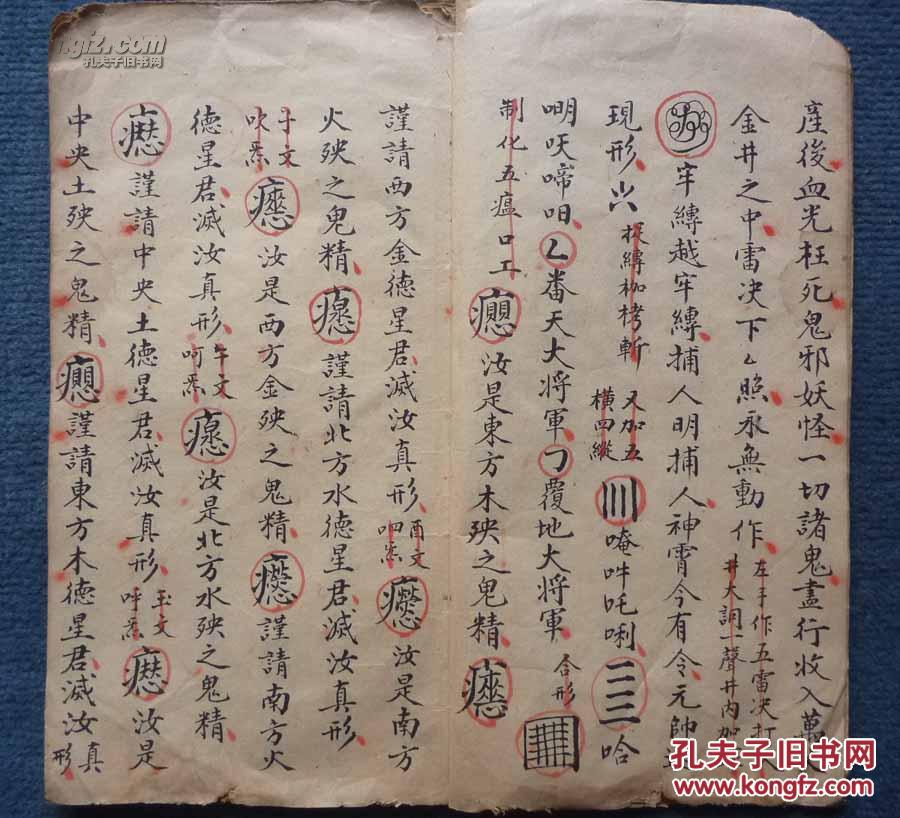 產後血光枉死鬼邪妖怪一切諸鬼盡行收入萬
金井之中雷决下 照承無動作 左手作五雷决打 井大調一聲井內加
牢縛越牢縛捕人明捕人神霄令有令元帥
現形 枷栲斬 又加五橫四縱 唵吽吒唎 哈
呪吠啼呬 番天大将軍 覆地大将軍 合形
制化五瘟口工 汝是東方木殃之鬼精
謹請西方金德星君滅汝真形 酉文 汝是南方
火殃之鬼精 謹請北方水德星君滅汝真形
子文 吹炁 汝是西方金殃之鬼精 謹請南方火
德星君滅汝真形 午文 呵炁 汝是北方水殃之鬼精
謹請中央土德星君滅汝真形 玉文 呼炁 汝是
中央土殃之鬼精 謹請東方木德星君滅汝真形
孔夫子旧书网
孔夫子旧书网
www.kongfz.com